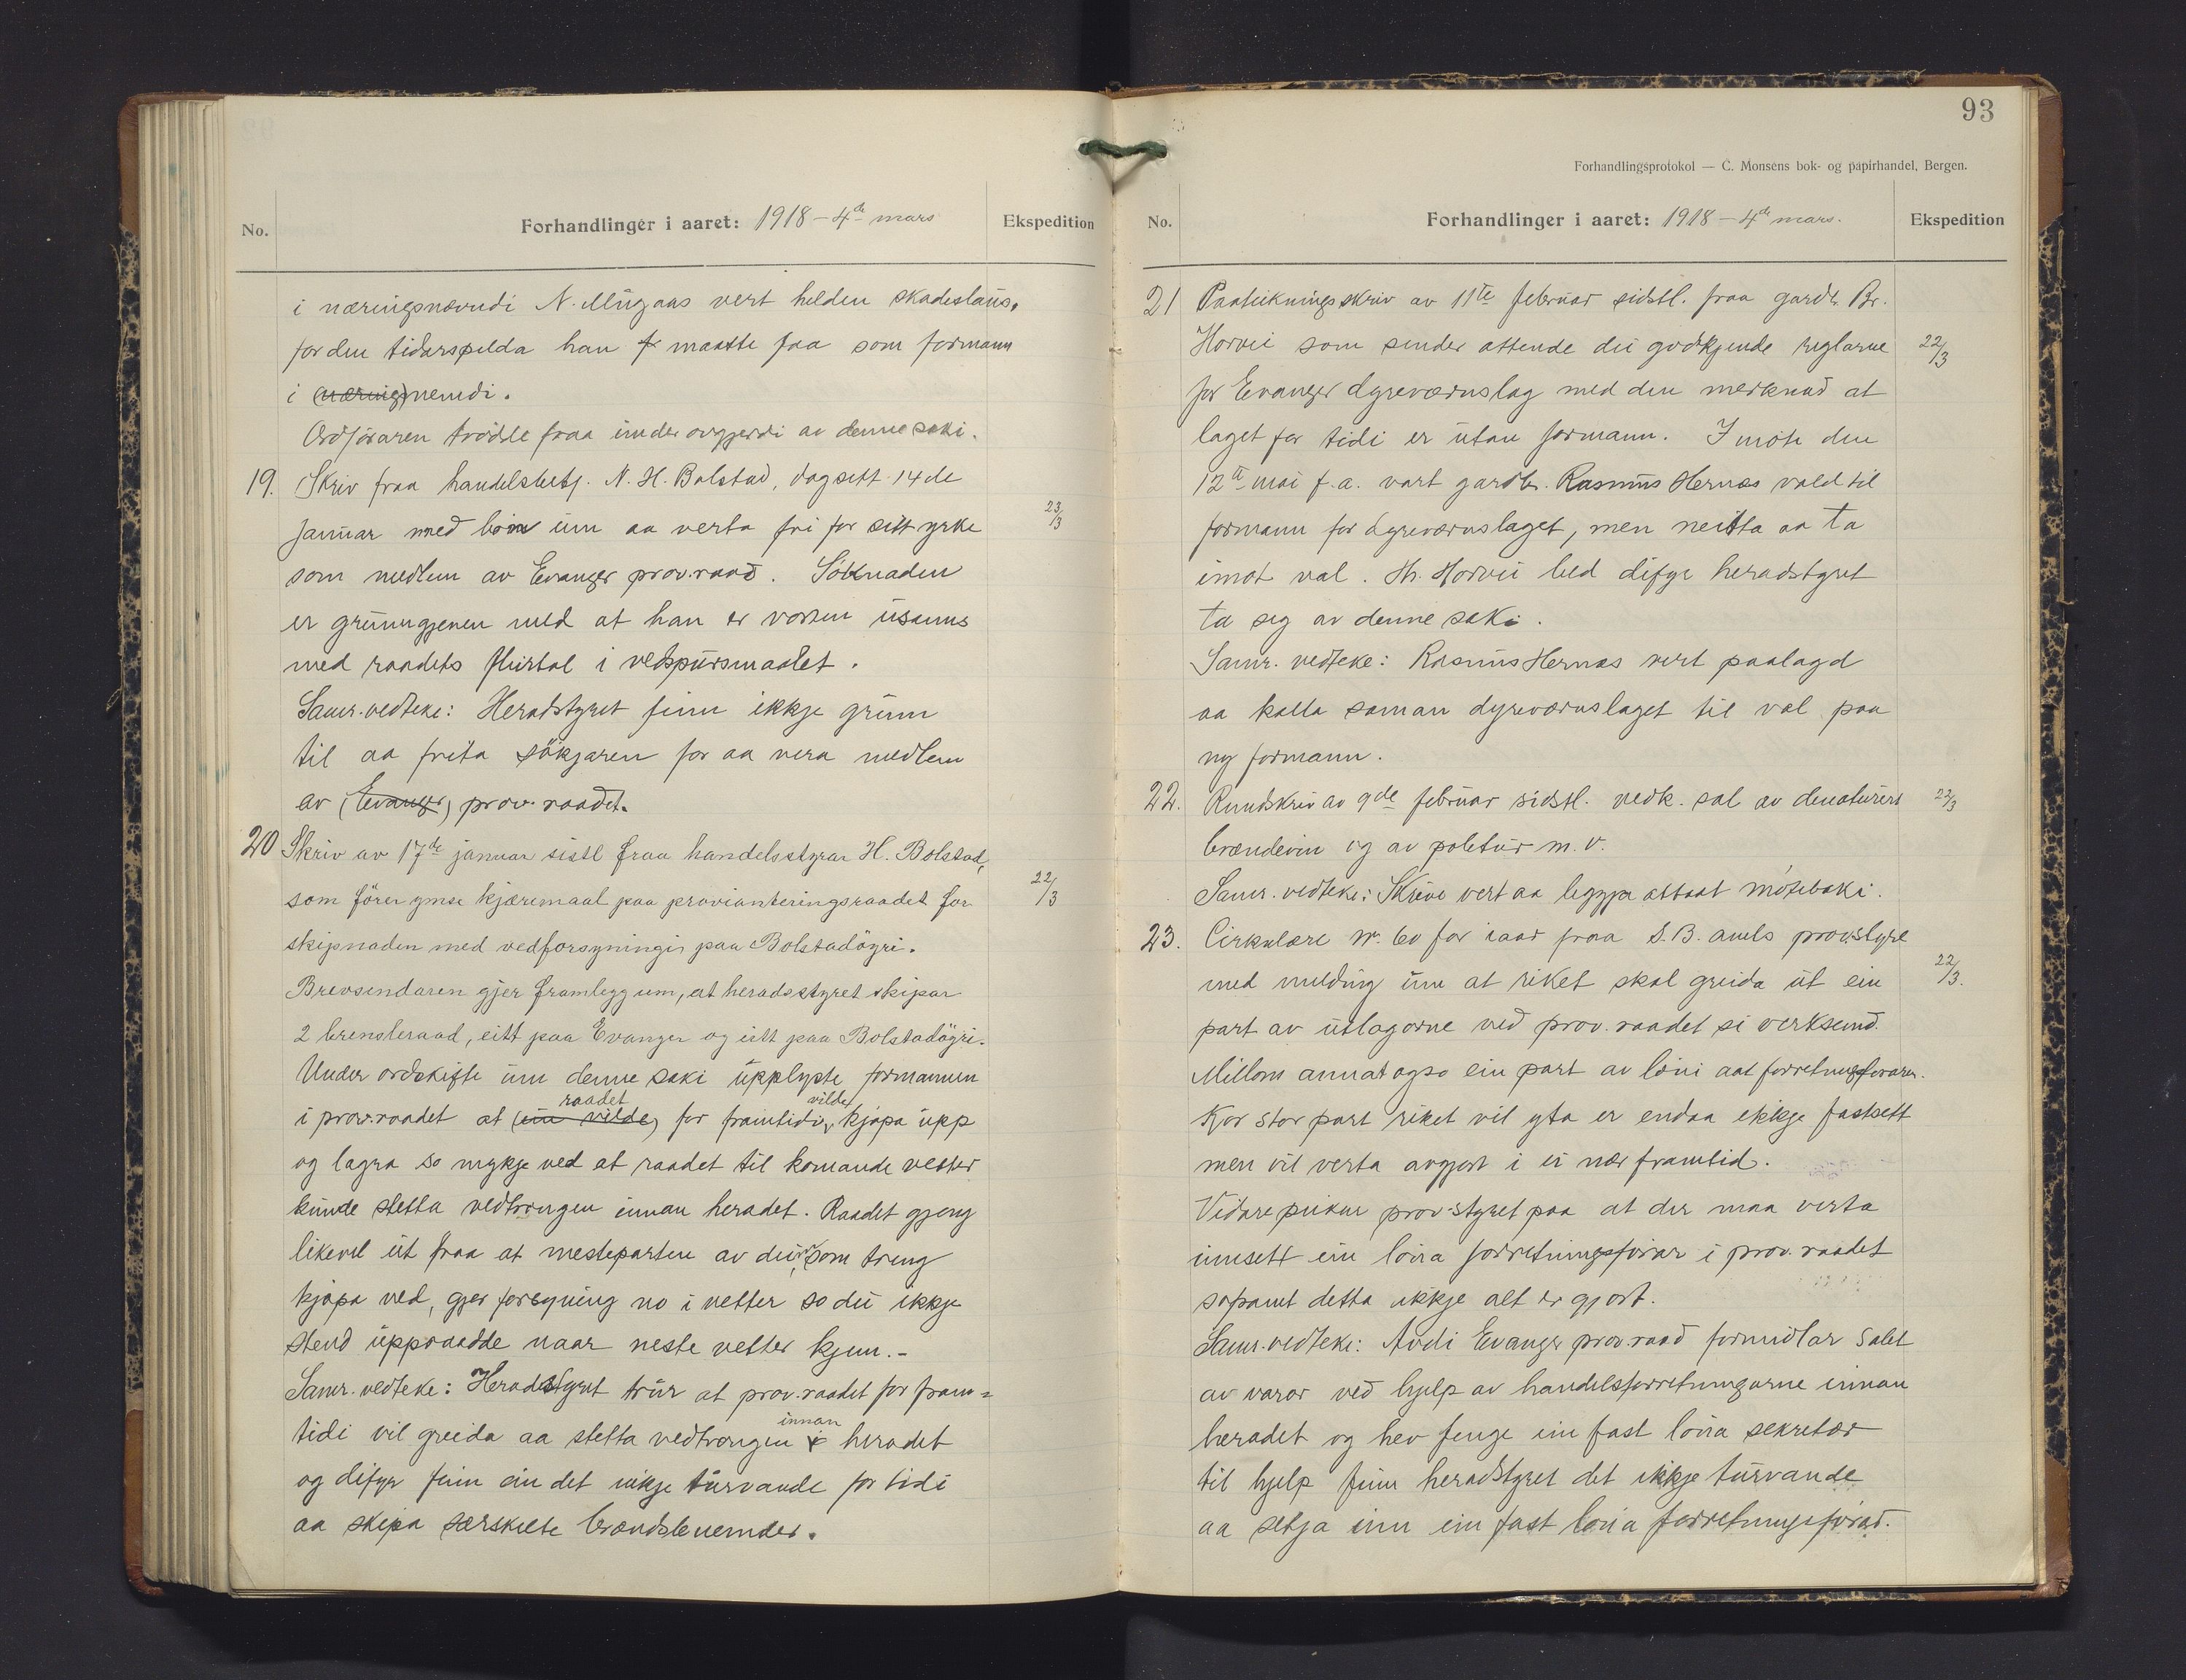 No.
Forhandlinger i aaret: 1918 – 4de mars
Ekspedition
i næringsnevndi N. Mugaas vert helden skadeslaus.
for den tidarspilda han fr maatte faa som formann
i (næring)nemdi.
Ordföraren trödde fraa under avgjerdi av denne saki.
19. Skriv fraa handelsbetj. N. H. Bolstad, dagsett 14de
23/3
januar med bön um aa verta fri for sitt yrke
som medlem av Evanger prov.raad. Söknaden
er grunngjeven med at han er vorzen usams
med raadets fleirtal i vedspursmaalet.
Samr. vedteke: Heradstyret finn ikkje grunn
til aa frita sökjaren for aa vera medlem
av (Evanger) prov. raadet.
20 Skriv av 17de januar sistl fraa handelsstyrar H. Bolstad,
22/3
som förer ymse kjæremaal paa provianteringsraadet for
skipnaden med vedforsyningi paa Bolstadöyri.
Brevsendaren gjer framlegg um, at heradsstyret skipar
2 brensleraad, eitt paa Evanger og eitt paa Bolstadöyri.
Under ordskifte um denne saki upplyste formannen
raadet vilde
i prov.raadet at (ein vilde) for framtidi kjöpa upp
og lagra so mykje ved at raadet til komande vetter
kunde stetta vedtrongen innan heradet. Raadet gjeng
likevel ut fraa at mesteparten av dei, som treng
kjöpa ved, gjer forsyning no i vetter so dei ikkje
stend uppraadde naar neste vetter kjem.–
Samr. vedteke: Heradstyret trur at prov.raadet for fram=
innan
tidi vil greida aa stetta vedtrongen i heradet
og difyr finn ein det ikkje turvande for tidi
aa skipa særskilte brændslenemder.
93
Forhandlingsprotokol — C. Monsens bok- og papirhandel, Bergen.
No.
Forhandlinger i aaret: 1918 – 4de mars.
Ekspedition
21 Paateikningsskriv av 11te februar sidstl. fraa gardbr. Br.
Horvei som sender attende dei godkjende reglarne
22/3
for Evanger dyreværnslag med den merknad at
laget for tidi er utan formann. I möte den
12te mai f.a. vart gardbr. Rasmus Hernæs vald til
formann for dyreværnslaget, men neitta aa ta
imot val. Hr. Horvei bed difyr heradstyret
ta seg av denne saki.
Samr. vedteke: Rasmus Hernæs vert paalagd
aa kalla saman dyreværnslaget til val paa
ny formann.
22. Rundskriv av 9de februar sidstl. vedk. sal av denaturert
22/3
brændevin og av politur m.v.
Samr. vedteke: Skrive vert aa leggja attaat möteboki.
23. Cirkulære nr. 60 for iaar fraa S.B. amts prov.styre
22/3.
med melding um at riket skal greida ut ein
part av utlagorne ved prov.raadet si verksemd.
Millom annat ogso ein part av löni aat forretningsförarer.
Kor stor part riket vil yta er endaa ikkje fastsett
men vil verta avgjort i ei nær framtid.
Vidare peikar prov.styret paa at der maa verta
innsett ein löna forretningsförar i prov.raadet
sopamt detta ikkje alt er gjort.
Samr. vedteke: Avdi Evanger prov.raad formidlar salet
av varor ved hjelp av handelsforretningarne innan
heradet og hev fenge ein fast löna sekretær
til hjelp finn heradstyret det ikkje turvande
aa setja inn ein fast löna forretningsförar.